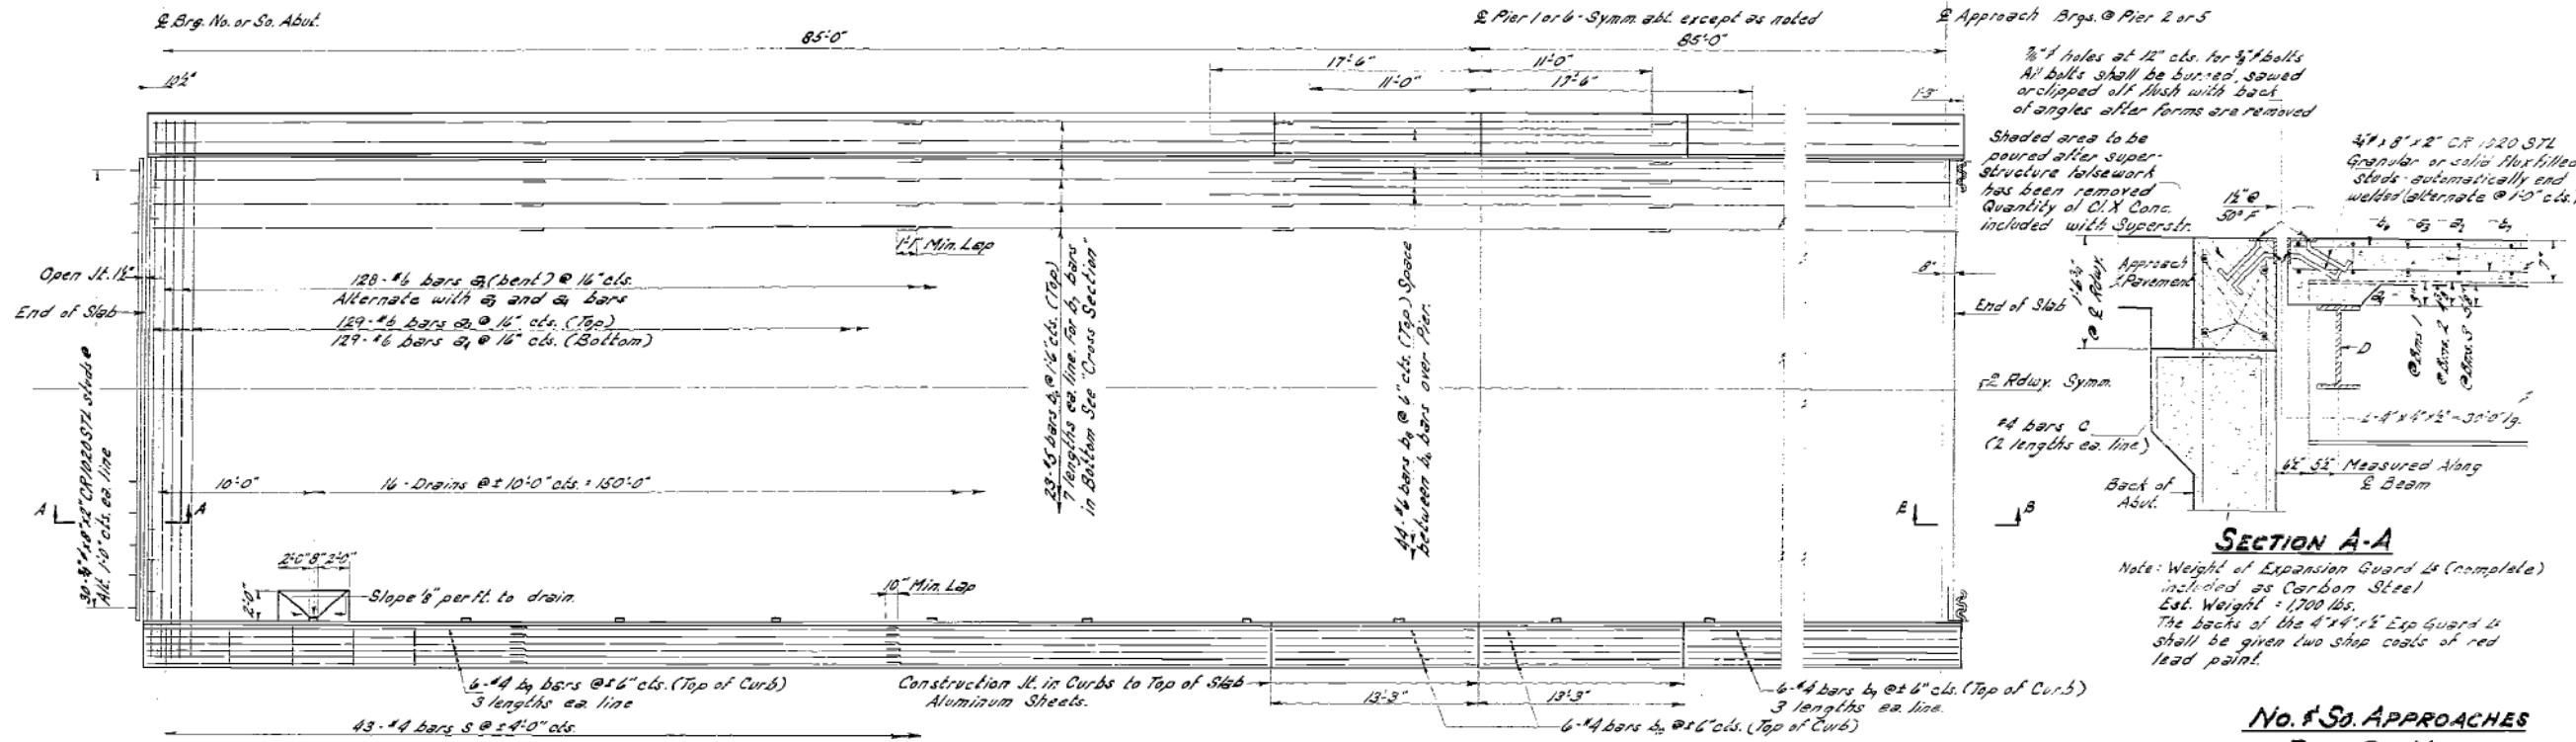 ℄ Brg. No. or So. Abut.
℄ Pier 1 or 6 - Symm. abt. except as noted
℄ Approach Brgs. @ Pier 2 or 5
85'-0"
85'-0"
10½"
17'-6"
11'-0"
11'-0"
17'-6"
1'-3"
⅞"ϕ holes at 12" cts. for ¾"ϕ bolts
All bolts shall be burned, sawed
or clipped off flush with back
of angles after forms are removed
Shaded area to be
poured after super-
structure falsework
has been removed
Quantity of Cl. X Conc.
included with Superstr.
¾"ϕ x 8" x 2" CR 1020 STL
Granular or solid flux filled
studs - automatically end
welded (alternate @ 1'-0" cts.)
1½" @
50° F
Open Jt. 1½"
End of Slab
1'-1" Min. Lap
128 - #6 bars a (bent) @ 16" cts.
Alternate with a3 and a4 bars
129 - #6 bars a3 @ 16" cts. (Top)
129 - #6 bars a4 @ 16" cts. (Bottom)
23 - #5 bars b @ 1'-6" cts. (Top)
7 lengths ea. line. For b7 bars
in Bottom See "Cross Section"
44 - #6 bars b8 @ 6" cts. (Top) Space
between b6 bars over Pier.
8"
End of Slab
℄ Rdwy. Symm.
1'-6¾"
@ ℄ Rdwy.
Approach
Pavement
7"
@ Bms. 1
@ Bms. 2
@ Bms. 3
D
L-4" x 4" x ½" - 30'-0" lg.
#4 bars C
(2 lengths ea. line)
6½" 5½" Measured Along
℄ Beam
Back of
Abut.
30 - ¾"ϕ x 8" x 2" CR 1020 STL studs @
Alt. 1'-0" cts. ea. line
10'-0"
16 - Drains @ ± 10'-0" cts. = 150'-0"
A
A
B
B
2'-0" 8" 2'-0"
2'-0"
Slope ⅛" per ft. to drain.
10" Min. Lap
SECTION A-A
Note: Weight of Expansion Guard Ls (complete)
included as Carbon Steel
Est. Weight = 1,700 lbs.
The backs of the 4" x 4" x ½" Exp Guard Ls
shall be given two shop coats of red
lead paint.
6 - #4 b9 bars @ ± 6" cts. (Top of Curb)
3 lengths ea. line
Construction Jt. in Curbs to Top of Slab
Aluminum Sheets.
13'-3"
13'-3"
6 - #4 bars b9 @ ± 6" cts. (Top of Curb)
3 lengths ea. line.
6 - #4 bars @ ± 6" cts. (Top of Curb)
43 - #4 bars s @ ± 4'-0" cts.
No. & So. APPROACHES